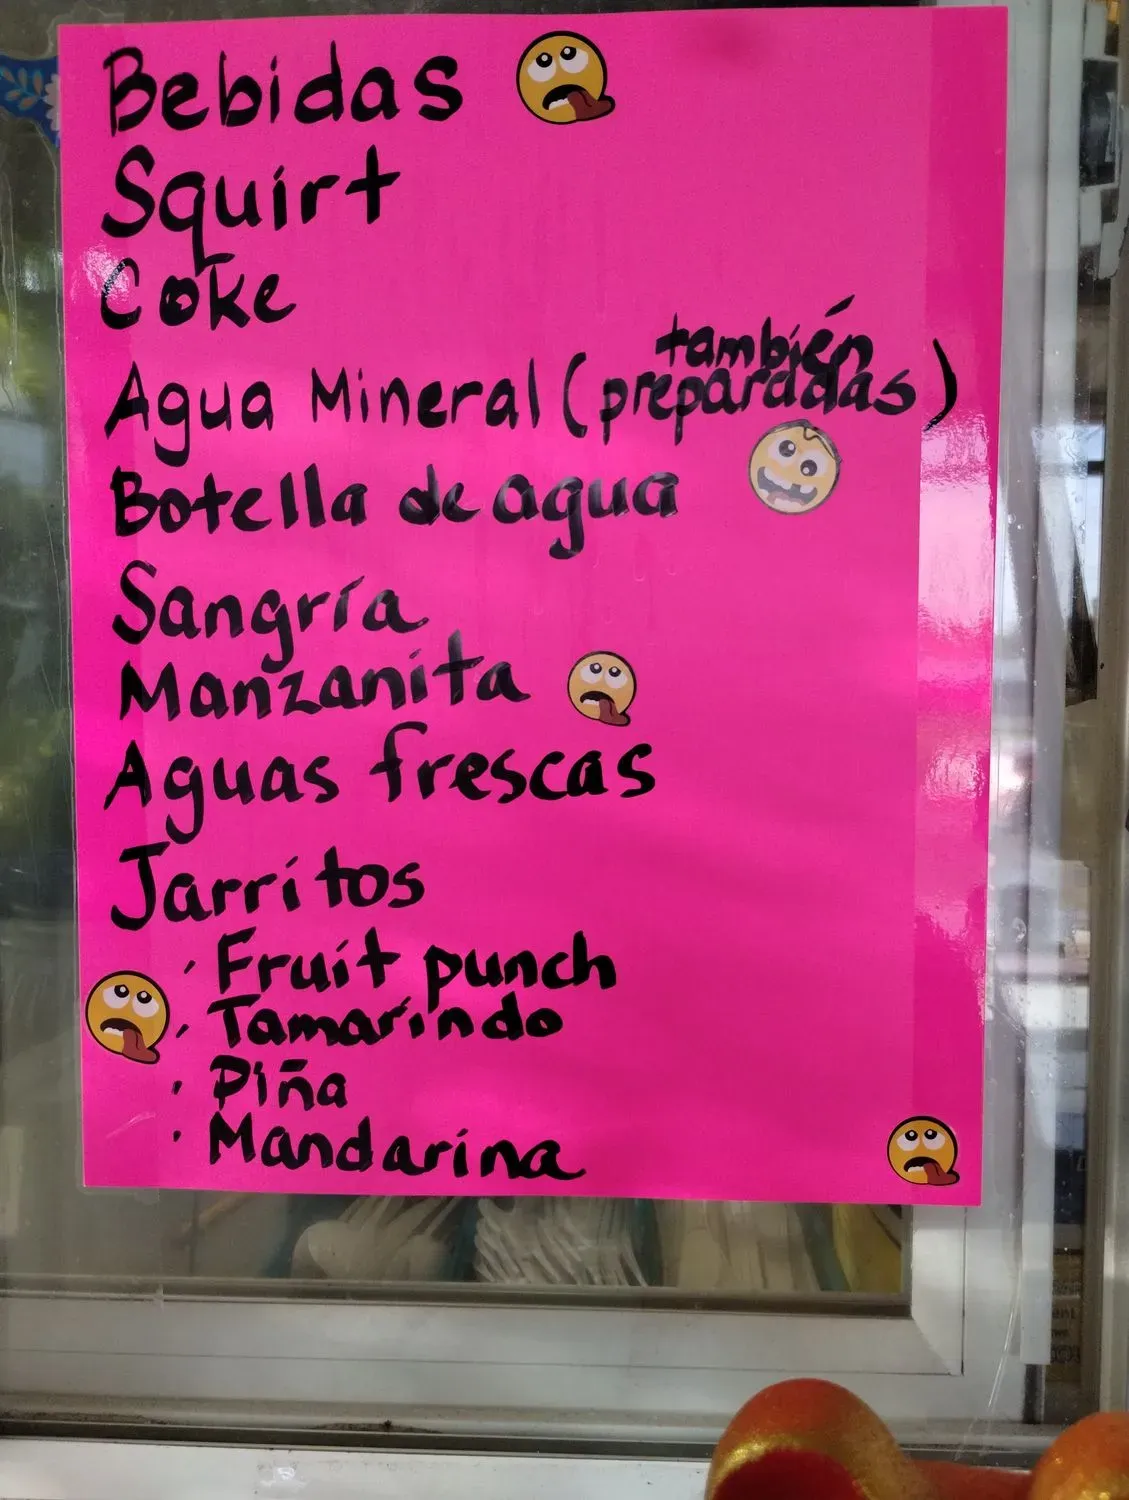 Bebidas
Squirt
Coke
Agua Mineral (también preparadas)
Botella de agua
Sangría
Manzanita
Aguas frescas
Jarritos
· Fruit punch
· Tamarindo
· Piña
· Mandarina